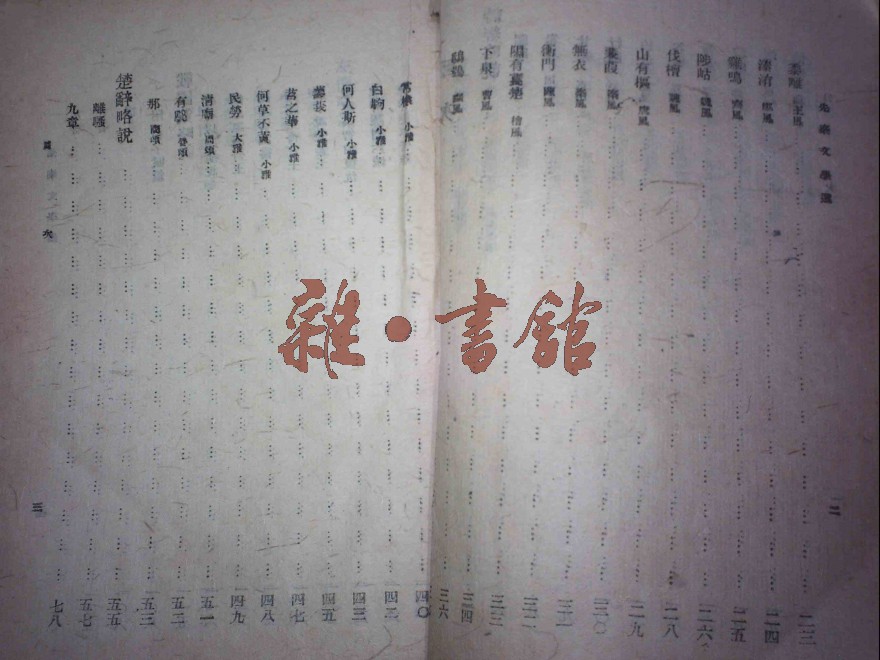 先秦文學選
二
黍離 王風 二三
溱洧 鄭風 二四
雞鳴 齊風 二五
陟岵 魏風 二六
伐檀 魏風 二八
山有樞 唐風 二九
蒹葭 秦風 三〇
無衣 秦風 三一
衡門 陳風 三二
隰有萇楚 檜風 三三
下泉 曹風 三四
鴟鴞 豳風 三六
常棣 小雅 四〇
白駒 小雅 四二
何人斯 小雅 四三
蓼莪 小雅 四五
苕之華 小雅 四七
何草不黃 小雅 四八
民勞 大雅 四九
清廟 周頌 五一
有駜 魯頌 五二
那 商頌 五三
楚辭略說 五五
離騷 五七
九章 七八
三
雜·書館